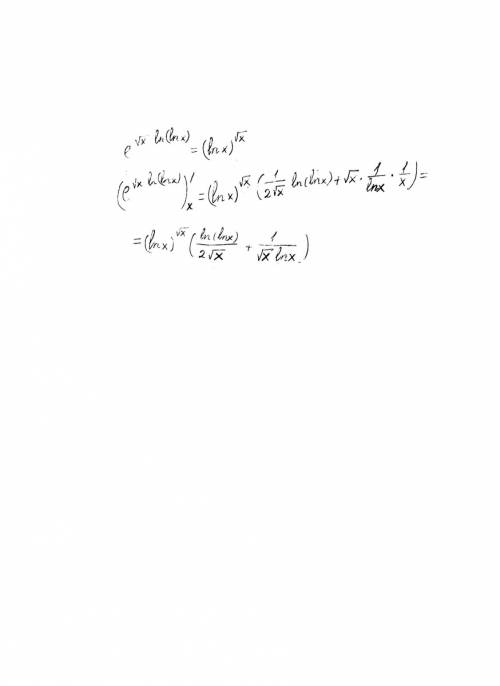 e^{√x ln(lnx)} = (lnx)^{√x}
(e^{√x ln(lnx)})'_x = (lnx)^{√x} (\frac{1}{2√x} ln(lnx) + √x · \frac{1}{lnx} · \frac{1}{x}) =
= (lnx)^{√x} (\frac{ln(lnx)}{2√x} + \frac{1}{√x lnx})